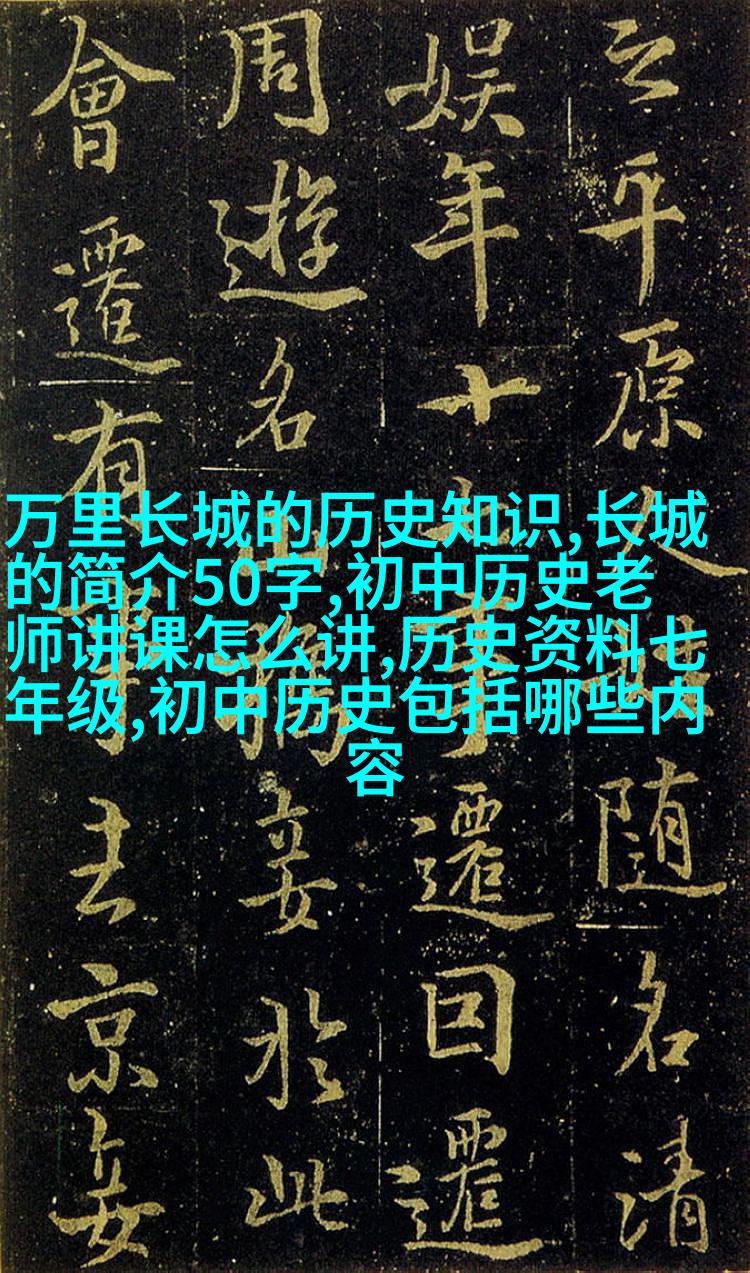 万里长城的历史知识,长城
的简介50字,初中历史老
师讲课怎么讲,历史资料七
年级,初中历史包括哪些内
容
之平原随名清
娱年十遷回遷
周遊名於此
會遷有京